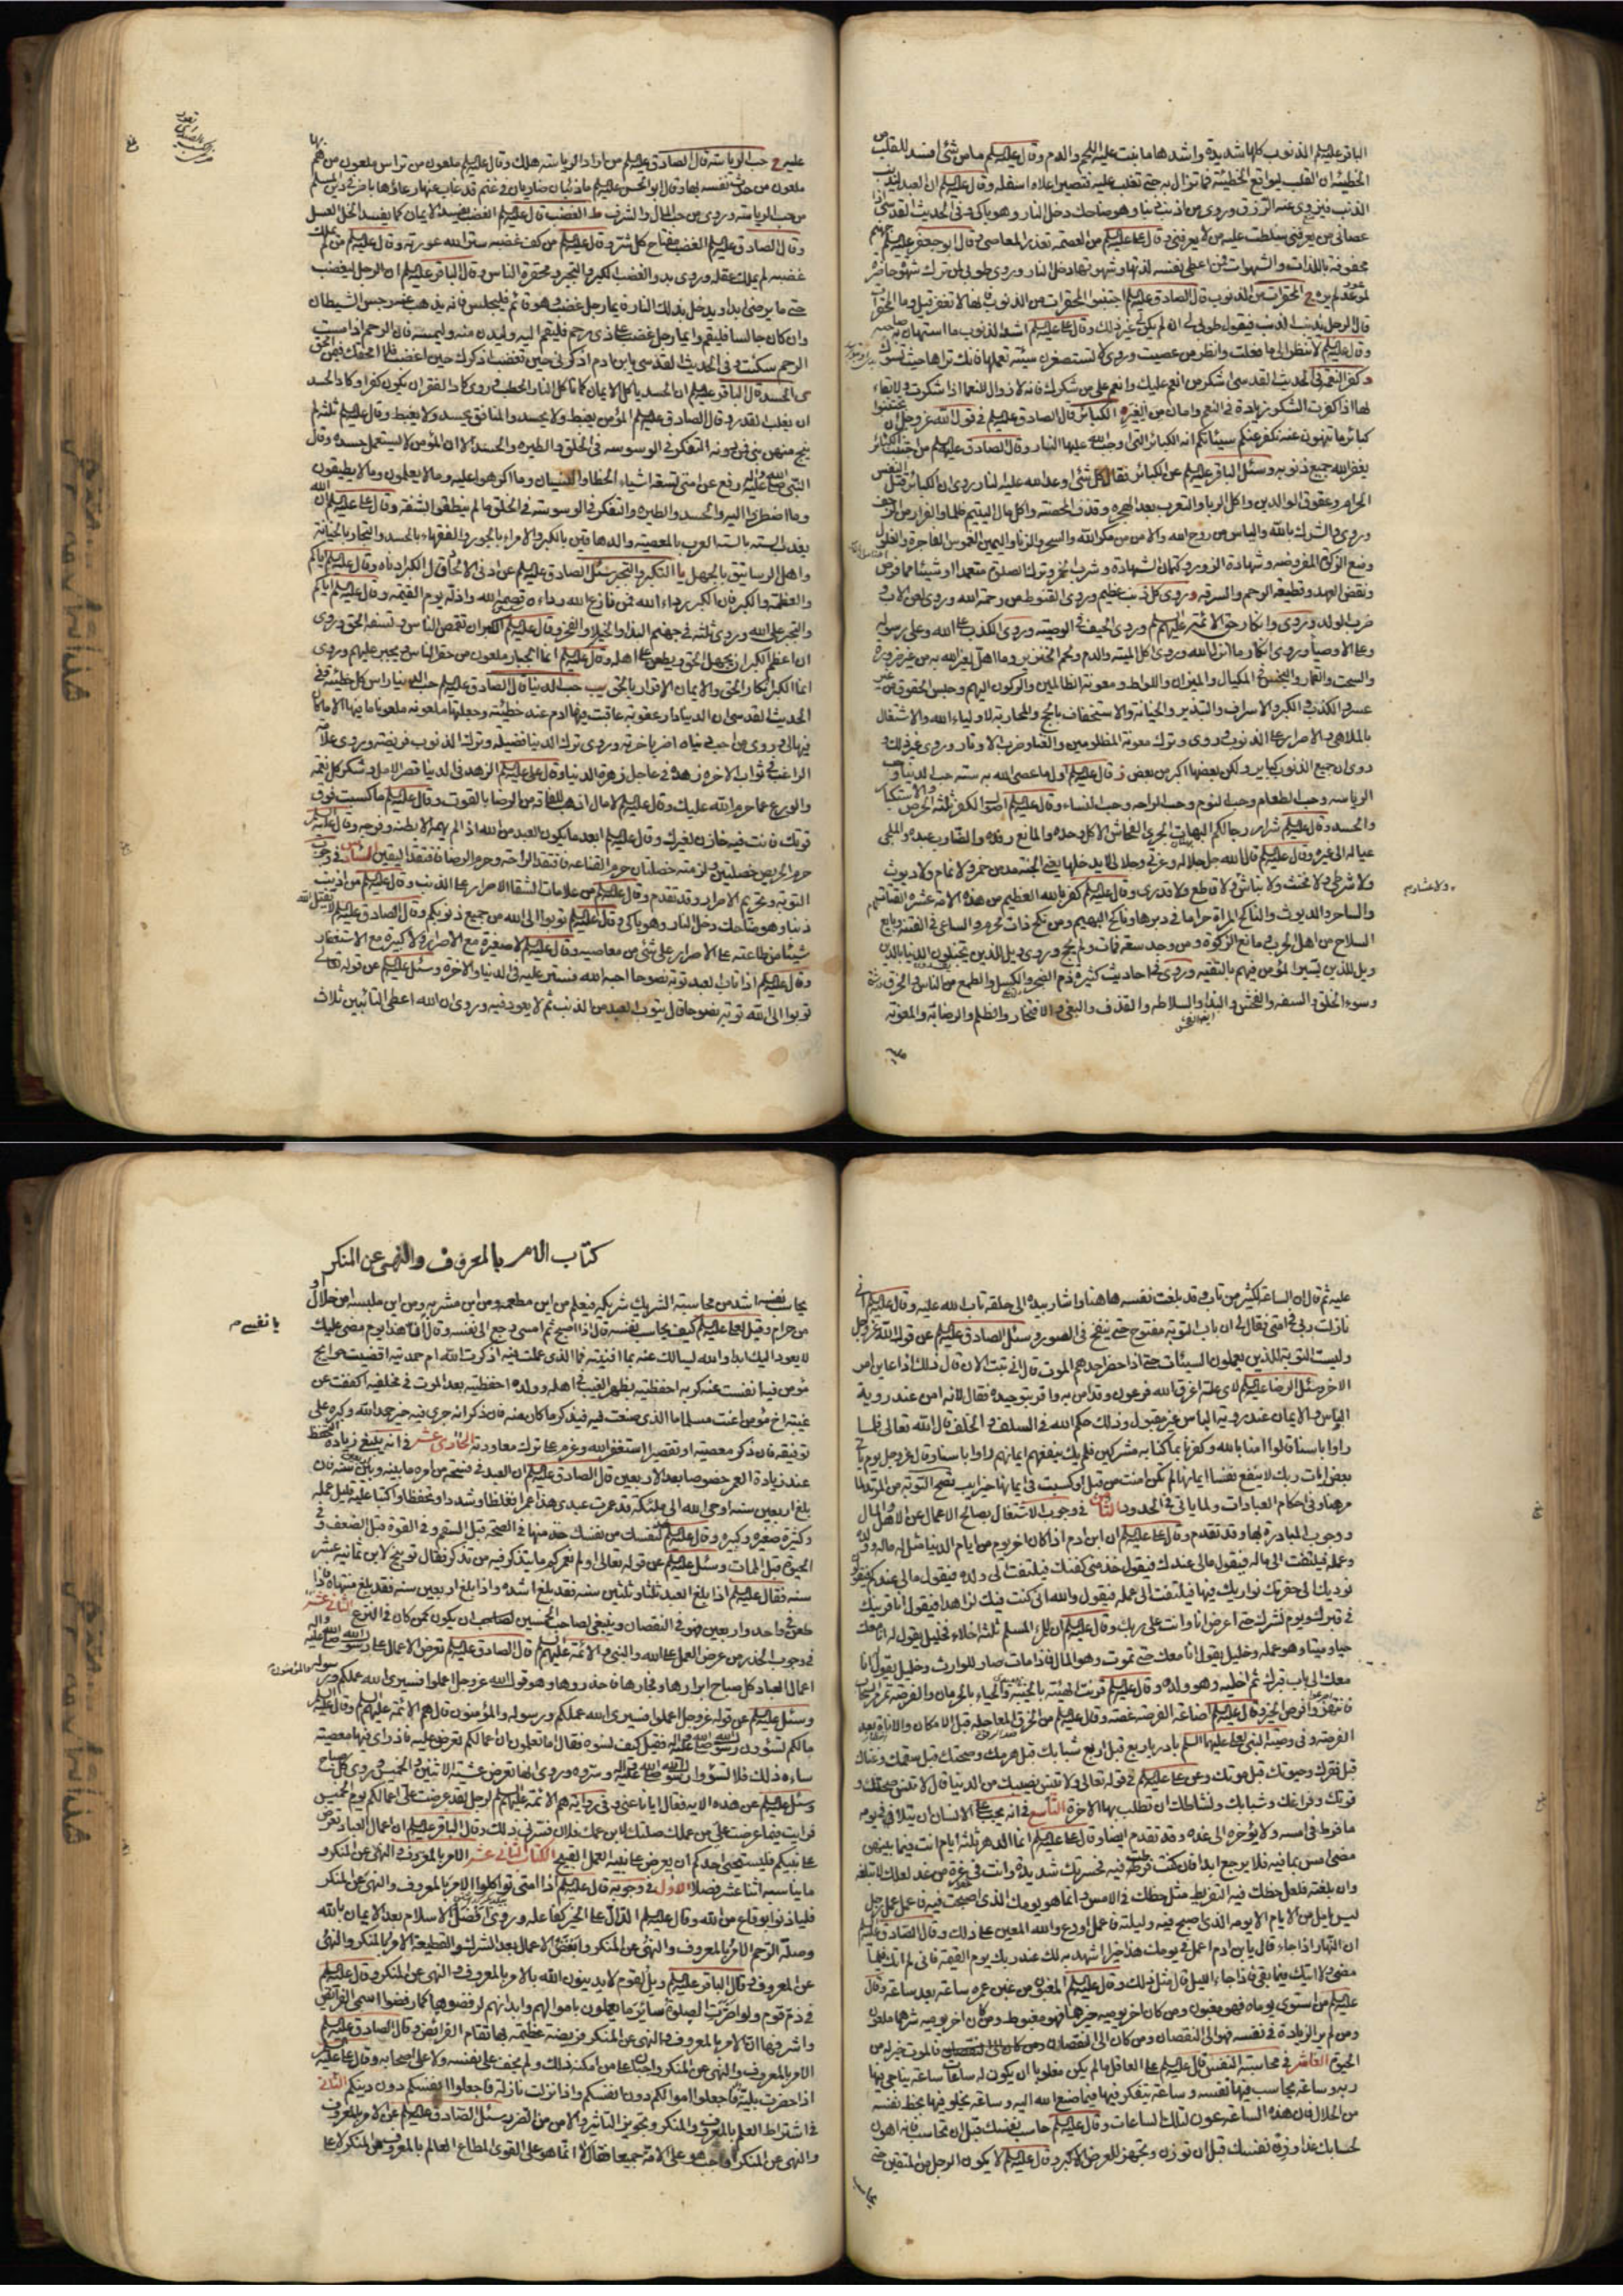 الباقر عليه السلم الذنوب كلها شديدة واشدها ما نبت عليه اللحم والدم وقال عليه السلم ما من شئ افسد للقلب من
الخطيئة ان القلب ليواقع الخطيئة فما تزال به حتى تغلب عليه فتصير اعلاه اسفله وقال عليه السلم ان العبد ليذنب
الذنب فيزوى عنه الرزق وروى من اذنب ذنبا وهو ضاحك دخل النار وهو باكى وفى الحديث القدسى اذا
عصانى من يعرفنى سلطت عليه من لا يعرفنى وقال على عليه السلم من العصمة تعذر المعاصى وقال ابو جعفر عليه السلم
محفوفة باللذات والشهوات فمن اعطى نفسه لذتها وشهوتها دخل النار وروى طوبى لمن ترك شهوة حاضرة
لموعد لم يره المحقرات من الذنوب قال الصادق عليه السلم اجتنبوا المحقرات من الذنوب فانها لا تغفر قيل وما المحقرات
قال الرجل يذنب الذنب فيقول طوبى لى ان لم يكن لى غير ذلك وقال على عليه السلم اشد الذنوب ما استهان به صاحبه
وقال عليه السلم لا تنظر الى ما فعلت وانظر من عصيت وروى لا تستصغرن سيئة تعملها فانك تراها حيث تسوءك
وكفر النعم فى الحديث القدسى اشكر من انعم عليك وانعم على من شكرك فانه لا زوال للنعما اذا شكرت ولا بقاء
لها اذا كفرت الشكر زيادة فى النعم وامان من الغير الكبائر قال الصادق عليه السلم فى قول الله عز وجل ان تجتنبوا
كبائر ما تنهون عنه نكفر عنكم سيئاتكم انه الكبائر التى اوجب الله عليها النار وقال الصادق عليه السلم من اجتنب الكبائر
يغفر الله جميع ذنوبه وسئل الباقر عليه السلم عن الكبائر فقال كل شئ اوعد الله عليه النار وروى ان الكبائر قتل النفس
الحرام وعقوق الوالدين واكل الربا والتعرب بعد الهجرة وقذف المحصنة واكل مال اليتيم ظلما والفرار من الزحف
وروى والشرك بالله والياس من روح الله والامن من مكر الله والسحر والزنا واليمين الغموس الفاجرة والغلول
ومنع الزكوة المفروضة وشهادة الزور وكتمان الشهادة وشرب الخمر وترك الصلوة متعمدا او شيئا مما فرض
ونقض العهد وقطيعة الرحم والسرقة وروى كل ذنب عظيم وروى القنوط من رحمة الله
وروى وانكار حق الائمة عليهم السلم وروى الحيف فى الوصية وروى الكذب على الله وعلى رسوله
وعلى الاوصياء وروى انكار ما انزل الله وروى اكل الميتة والدم ولحم الخنزير وما اهل لغير الله به من غير ضرورة
والسحت والقمار والبخس فى المكيال والميزان واللواط ومعونة الظالمين والركون اليهم وحبس الحقوق من غير
عسر والكذب والكبر والاسراف والتبذير والخيانة والاستخفاف بالحج والمحاربة لاولياء الله والاشتغال
بالملاهى والاصرار على الذنوب وروى وترك معونة المظلومين والغناء وضرب الاوتار وروى غير ذلك
وروى ان جميع الذنوب كباير ولكن بعضها اكبر من بعض وقال عليه السلم اول ما عصى الله به ستة حب الدنيا وحب
الرياسة وحب الطعام وحب النوم وحب الراحة وحب النساء وقال عليه السلم اصول الكفر ثلثة الحرص والاستكبار
والحسد وقال عليه السلم شرار رجالكم البهات الجرى الفحاش الاكل وحده والمانع رفده والضارب عبده والملجى
عياله الى غيره وقال عليه السلم قال الله جل جلاله وعزتى وجلالى لا يدخلها يعنى الجنة مدمن خمر ولا نمام ولا ديوث
ولا شرطى ولا مخنث ولا نباش ولا قاطع ولا قدرى وقال عليه السلم كفر بالله العظيم من هذه الامة عشرة القتات
ولا عشار م
والساحر والديوث والناكح المراة حراما فى دبرها وناكح البهيمة ومن نكح ذات محرم والساعى فى الفتنة وبايع
السلاح من اهل الحرب ومانع الزكوة ومن وجد سعة فمات ولم يحج وروى ويل للذين يجتلبون الدنيا بالدين
ويل للذين يسير المؤمن فيهم بالتقية وروى فى احاديث كثيرة ذم الضجر والكسل والطمع من الناس والخرق
وسوء الخلق والسفه والفحش والبذاء والسلاطة والقذف والبغى والافتخار والظلم والرضا به والمعونة
بها
عليه حب الرياسة قال الصادق عليه السلم من اراد الرياسة هلك وقال عليه السلم ملعون من تراس ملعون من هم
ملعون من حدث نفسه بها وقال ابو الحسن عليه السلم ما ذئبان ضاريان فى غنم قد غاب عنها رعاؤها باضر فى دين المسلم
من حب الرياسة وروى من حب المال والشرف الغضب قال عليه السلم الغضب يفسد الايمان كما يفسد الخل العسل
وقال الصادق عليه السلم الغضب مفتاح كل شر وقال عليه السلم من كف غضبه ستر الله عورته وقال عليه السلم من لم يملك
غضبه لم يملك عقله وروى بدو الغضب الكبر والتجبر ومحقرة الناس وقال الباقر عليه السلم ان الرجل ليغضب
حتى ما يرضى ابدا ويدخل بذلك النار فايما رجل غضب وهو قائم فليجلس فانه يذهب عنه رجس الشيطان
وان كان جالسا فليقم وايما رجل غضب على ذى رحم فليقم اليه وليدن منه وليمسه فان الرحم اذا مست
الرحم سكنت وفى الحديث القدسى يا ابن ادم اذكرنى حين تغضب اذكرك حين اغضب فلا امحقك فيمن امحق
الحسد قال الباقر عليه السلم ان الحسد ياكل الايمان كما تاكل النار الحطب وروى كاد الفقر ان يكون كفرا وكاد الحسد
ان يغلب القدر وقال الصادق عليه السلم المؤمن يغبط ولا يحسد والمنافق يحسد ولا يغبط وقال عليه السلم ثلثة لم
ينج منهن نبى فمن دونه التفكر فى الوسوسة فى الخلق والطيرة والحسد الا ان المؤمن لا يستعمل حسده وقال
النبى صلى الله عليه واله رفع عن امتى تسعة اشياء الخطا والنسيان وما اكرهوا عليه وما لا يعلمون وما لا يطيقون
وما اضطروا اليه والحسد والطيرة والتفكر فى الوسوسة فى الخلق ما لم ينطقوا بشفة وقال على عليه السلم ان الله
يعذب الستة بالستة العرب بالمعصية والدهاقين بالكبر والامراء بالجور والفقهاء بالحسد والتجار بالخيانة
واهل الرساتيق بالجهل يا التكبر والتجبر سئل الصادق عليه السلم عن ادنى الالحاد قال الكبر ادناه وقال عليه السلم اياكم
والعظمة والكبر فان الكبر رداء الله فمن نازع الله رداءه قصمه الله واذله يوم القيمة وقال عليه السلم اياكم
والتجبر على الله وروى ثلثة فى جهنم البذاء والخيلاء والفخر وقال عليه السلم الكبر ان تغمص الناس وتسفه الحق وروى
ان اعظم الكبر ان يجهل الحق ويطعن على اهله وقال عليه السلم انما الجبار ملعون من حقر الناس وتجبر عليهم وروى
انما الكبر انكار الحق والايمان الاقرار بالحق يب حب الدنيا قال الصادق عليه السلم حب الدنيا راس كل خطيئة وفى
الحديث القدسى ان الدنيا دار عقوبة عاقبت فيها ادم عند خطيئته وجعلتها ملعونة ملعونا ما فيها الا ما كان
فيها لى وروى من احب دنياه اضر باخرته وروى ترك الدنيا فضيلة وترك الذنوب فريضة وروى علامة
الراغب فى ثواب الاخرة زهده فى عاجل زهرة الدنيا وقال على عليه السلم الزهد فى الدنيا قصر الامل وشكر كل نعمة
والورع عما حرم الله عليك وقال عليه السلم لا مال اذهب للفاقة من الرضا بالقوت وقال عليه السلم ما كسبت فوق
قوتك فانت فيه خازن لغيرك وقال عليه السلم ابعد ما يكون العبد من الله اذا لم يهمه الا بطنه وفرجه وقال عليه السلم
حرم الحريص خصلتين ولزمته خصلتان حرم القناعة فافتقد الراحة وحرم الرضا فافتقد اليقين السادس فى وجوب
التوبة وتحريم الاصرار وقد تقدم وقال عليه السلم من علامات الشقا الاصرار على الذنب وقال عليه السلم من اذنب
ذنبا وهو ضاحك دخل النار وهو باكى وقال عليه السلم توبوا الى الله من جميع ذنوبكم وقال الصادق عليه السلم لا يقبل الله
شيئا من طاعته على الاصرار على شئ من معاصيه وقال عليه السلم لا صغيرة مع الاصرار ولا كبيرة مع الاستغفار
وقال عليه السلم اذا تاب العبد توبة نصوحا احبه الله فستر عليه فى الدنيا والاخرة وسئل عليه السلم عن قوله تعالى
توبوا الى الله توبة نصوحا قال يتوب العبد من الذنب ثم لا يعود فيه وروى ان الله اعطى التائبين ثلاث
عليه ثم قال ان الساعة لكثير من تاب وقد بلغت نفسه هاهنا واشار بيده الى حلقه تاب الله عليه وقال عليه السلم
نازلت ربى فى امتى فقال لى ان باب التوبة مفتوح حتى ينفخ فى الصور وسئل الصادق عليه السلم عن قول الله عز وجل
وليست التوبة للذين يعملون السيئات حتى اذا حضر احدهم الموت قال انى تبت الان قال ذلك اذا عاين امر
الاخرة وسئل الرضا عليه السلم لاى علة اغرق الله فرعون وقد امن به واقر بتوحيده فقال لانه امن عند روية
الباس والايمان عند روية الباس غير مقبول وذلك حكم الله فى السلف والخلف قال الله تعالى فلما
راوا باسنا قالوا امنا بالله وكفرنا بما كنا به مشركين فلم يك ينفعهم ايمانهم لما راوا باسنا وقال عز وجل يوم ياتى
بعض ايات ربك لا ينفع نفسا ايمانها لم تكن امنت من قبل او كسبت فى ايمانها خيرا
مر هنا وفى احكام العبادات ولما ياتى فى الحدود الثامن فى وجوب الاشتغال بصالح الاعمال عن الاهل والمال
ووجوب المبادرة بها وقد تقدم وقال على عليه السلم ان ابن ادم اذا كان اخر يوم من ايام الدنيا مثل له ماله وولده
وعمله فيلتفت الى ماله فيقول ما لى عندك فيقول خذ منى كفنك فيلتفت الى ولده فيقول ما لى عندكم فيقولون
نوديك الى حفرتك نواريك فيها فيلتفت الى عمله فيقول والله انى كنت فيك لزاهدا فيقول انا قرينك
فى قبرك ويوم نشرك حتى اعرض انا وانت على ربك وقال عليه السلم ان للمرء المسلم ثلثة اخلاء فخليل يقول له انا معك
حيا وميتا وهو عمله وخليل يقول انا معك حتى تموت وهو المال فاذا مات صار للوارث وخليل يقول انا
معك الى باب قبرك ثم اخليه وهو ولده وقال عليه السلم قرنت الهيبة بالخيبة والحياء بالحرمان والفرصة تمر مر السحاب
فانتهزوا فرص الخير وقال عليه السلم اضاعة الفرصة غصة وقال عليه السلم من الخرق المعاجلة قبل الامكان والاناة بعد
الفرصة وفى وصية النبى لعلى عليهما السلم بادر باربع قبل اربع شبابك قبل هرمك وصحتك قبل سقمك وغناك
قبل فقرك وحيوتك قبل موتك وعن على عليه السلم فى قوله تعالى ولا تنس نصيبك من الدنيا قال لا تنس صحتك و
قوتك وفراغك وشبابك ونشاطك ان تطلب بها الاخرة التاسع فى انه يجب على الانسان ان يتلافى فى يومه
ما فرط فى امسه ولا يؤخره الى غده وقد تقدم ايضا وقال على عليه السلم انما الدهر ثلثة ايام انت فيما بينهن
مضى امس بما فيه فلا يرجع ابدا فان كنت فيه فحسرتك شديدة وانت فى غرة من غد لعلك لا تبلغه
وان بلغته فلعل حظك فيه التفريط مثل حظك فى الامس وانما هو يومك الذى اصبحت فيه فاعمل عمل رجل
ليس يامل من الايام الا يومه الذى اصبح فيه وليلته فاعمل او دع والله المعين على ذلك وقال الصادق عليه السلم
ان النهار اذا جاء قال يا ابن ادم اعمل فى يومك هذا خيرا اشهد به لك عند ربك يوم القيمة فانى لم اتك فيما
مضى ولا اتيك فيما بقى فاذا جاء الليل قال مثل ذلك وقال عليه السلم المغبون من غبن عمره ساعة بعد ساعة وقال
عليه السلم من استوى يوماه فهو مغبون ومن كان اخر يوميه خيرهما فهو مغبوط ومن كان اخر يوميه شرهما ملعون
ومن لم ير الزيادة فى نفسه فهو الى النقصان ومن كان الى النقصان فالموت خير له من
الحيوة العاشر فى محاسبة النفس قال عليه السلم على العاقل ما لم يكن مغلوبا ان يكون له ساعات ساعة يناجى فيها
ربه وساعة يحاسب فيها نفسه وساعة يتفكر فيها فيما صنع الله اليه وساعة يخلو فيها بحظ نفسه
من الحلال فان هذه الساعة عون لتلك الساعات وقال عليه السلم حاسب نفسك قبل ان تحاسب فانه اهون
لحسابك غدا وزن نفسك قبل ان توزن وتجهز للعرض الاكبر وقال عليه السلم لا يكون الرجل من المتقين حتى
يحاسب
كتاب الامر بالمعروف والنهى عن المنكر
يحاسب نفسه اشد من محاسبة الشريك شريكه فيعلم من اين مطعمه ومن اين مشربه ومن اين ملبسه امن حلال او
من حرام وقيل لعلى عليه السلم كيف يحاسب نفسه قال اذا اصبح ثم امسى رجع الى نفسه وقال ان هذا يوم مضى عليك
يا نفسى م
لا يعود اليك ابدا والله يسالك عنه بما افنيته فما الذى عملت فيه اذكرت الله ام حمدتيه اقضيت حوايج
مؤمن فيه انفست عنه كربة احفظتيه بظهر الغيب فى اهله وولده احفظتيه بعد الموت فى مخلفيه اكففت عن
غيبة اخ مؤمن اعنت مسلما ما الذى صنعت فيه فيذكر ما كان منه فان ذكر انه جرى فيه خير حمد الله وكبره على
توفيقه فان ذكر معصية او تقصيرا استغفر الله وعزم على ترك معاودته الحادى عشر فى انه ينبغى زيادة التحفظ
عند زيادة العمر خصوصا بعد الاربعين قال الصادق عليه السلم ان العبد فى فسحة من امره ما بينه وبين اربعين سنة فان
بلغ اربعين سنة اوحى الله الى ملئكته قد عمرت عبدى هذا عمرا فغلظا وشددا وتحفظا واكتبا عليه قليل عمله
وكثيره صغيره وكبيره وقال عليه السلم خذ لنفسك من نفسك خذ منها فى الصحة قبل السقم وفى القوة قبل الضعف وفى
الحيوة قبل الممات وسئل عليه السلم عن قوله تعالى اولم نعمركم ما يتذكر فيه من تذكر فقال توبيخ لابن ثمانية عشر
سنة فقال عليه السلم اذا بلغ العبد ثلثا وثلثين سنة فقد بلغ اشده واذا بلغ اربعين سنة فقد بلغ منتهاه فاذا
طعن فى واحد واربعين فهو فى النقصان وينبغى لصاحب الخمسين ان يكون كمن كان فى النزع الثانى عشر
فى وجوب الحذر من عرض العمل على الله والنبى والائمة عليهم السلم قال الصادق عليه السلم تعرض الاعمال على رسول الله صلى الله عليه واله
اعمال العباد كل صباح ابرارها وفجارها فاحذروها وهو قول الله عز وجل اعملوا فسيرى الله عملكم ورسوله
والمؤمنون م
وسئل عليه السلم عن قوله عز وجل اعملوا فسيرى الله عملكم ورسوله والمؤمنون قال هم الائمة عليهم السلم وقال عليه السلم
ما لكم تسؤون رسول الله صلى الله عليه واله فقيل كيف نسوءه فقال اما تعلمون ان اعمالكم تعرض عليه فاذا راى فيها معصية
ساءه ذلك فلا تسؤوا رسول الله صلى الله عليه واله وسروه وروى انها تعرض عشية الاثنين والخميس وروى كل صباح
وسئل عليه السلم عن هذه الاية فقال ايانا عنى وفى رواية هم الائمة عليهم السلم لرجل لقد عرضت على اعمالكم يوم الخميس
فرايت فيما عرضت على من عملك صلتك لابن عمك فلان فسرنى ذلك وقال الباقر عليه السلم ان اعمال العباد تعرض
على نبيكم فليستحيى احدكم ان يعرض على نبيه العمل القبيح الكتاب الثانى عشر الامر بالمعروف والنهى عن المنكر و
ما يناسبه اثنا عشر فصلا الاول فى وجوبه قال عليه السلم اذا امتى تواكلوا الامر بالمعروف والنهى عن المنكر
فلياذنوا بوقاع من الله وقال عليه السلم الدال على الخير كفاعله وروى افضل الاسلام بعد الايمان بالله
وصلة الرحم الامر بالمعروف والنهى عن المنكر وابغض الاعمال بعد الشرك والقطيعة الامر بالمنكر والنهى
عن المعروف وقال الباقر عليه السلم ويل لقوم لا يدينون الله بالامر بالمعروف والنهى عن المنكر وقال عليه السلم
فى ذم قوم ولو اضرت الصلوة بسائر ما يعملون باموالهم وابدانهم لرفضوها كما رفضوا اسمى الفرائض
واشرفها ان الامر بالمعروف والنهى عن المنكر فريضة عظيمة بها تقام الفرايض وقال الصادق عليه السلم
الامر بالمعروف والنهى عن المنكر واجبان على من امكنه ذلك ولم يخف على نفسه ولا على اصحابه وقال على عليه السلم
اذا حضرت بلية فاجعلوا اموالكم دون انفسكم واذا نزلت نازلة فاجعلوا انفسكم دون دينكم الثانى
فى اشتراط العلم بالمعروف والمنكر وتجويز التاثير والامن من الضرر سئل الصادق عليه السلم عن الامر بالمعروف
والنهى عن المنكر اواجب هو على الامة جميعا فقال لا انما هو على القوى المطاع العالم بالمعروف من المنكر لا على